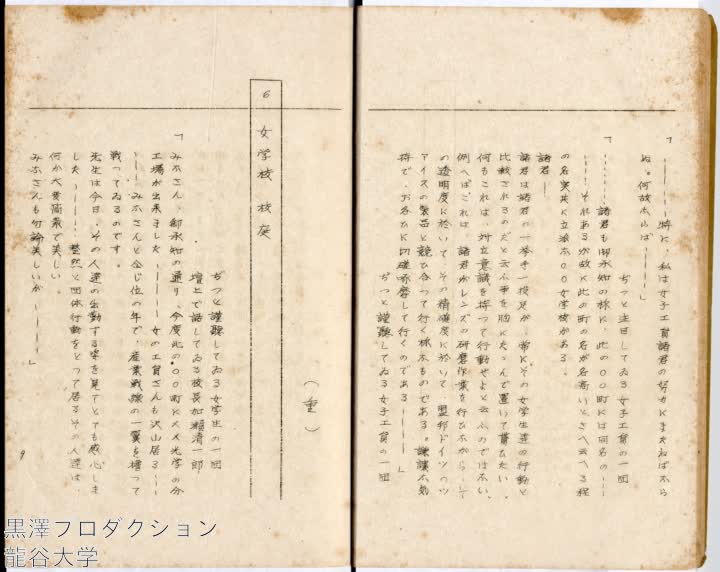 「――――特に、私は女子工員諸君の努力にまたねば不ら
ぬ。何故不らば――――
ぢっと注目してゐる女子工員の一団
「――――諸君も御承知の様に、此の〇〇町には同名の――
――――それあるが故に此の町の名が名高いとさへ云へる程
の名実共に立派不〇〇女学校がある。
諸君――
諸君は諸君の一挙手一投足が、常にその女学生達の行動と
比較されるのだと云ふ事を胸にたゝんで置いて貰ひたい。
何もこれは、対立意識を持つて行動せよと云ふのでは不い、
例へばこれは、諸君がレンズの研磨作業を行ひ不がら、――
の透明度に於いて、その精確度に於いて、盟邦ドイツのツ
アイスの製品と競ひ合つて行く様不ものである。謙譲不気
持で、お各ひに切磋琢磨して行くのである――――」
ぢっと謹聴してゐる女子工員の一団
(重)
6 女学校 校庭
ぢっと謹聴してゐる女学生の一団
壇上で話してゐる校長加瀬清一郎
「みふさん、御承知の通り、今度此の〇〇町に〆〆光学の分
工場が出来ました――――女の工員さんも沢山居る――
――――みふさんと仝じ位の年で、産業戦線の一翼を擔つて
戦つてゐるのです。
先生は今日、その人達の出勤する姿を見てとても感心しま
した――――整然と団体行動をとつて居るその人達は、
何か大変簡素で美しい。
みふさんも勿論美しいが――――」
9
黒澤プロダクション
龍谷大学